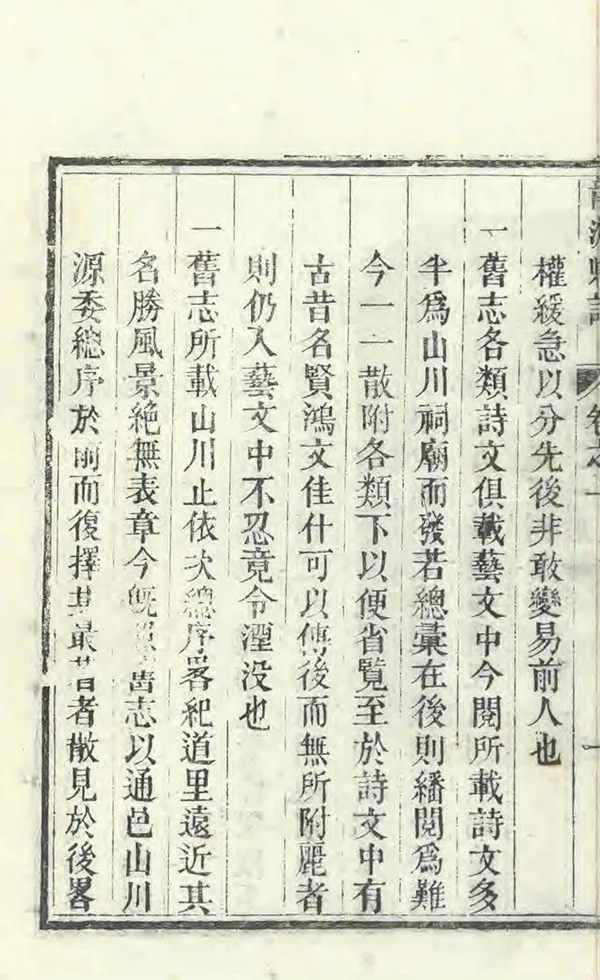 卷之一
權緩急以分先後非敢變易前人也
一舊志各類詩文俱載藝文中今閱所載詩文多
半爲山川祠廟而發若總彙在後則繙閱爲難
今一一散附各類下以便省覽至於詩文中有
古昔名賢鴻文佳什可以傳後而無所附麗者
則仍入藝文中不忍竟令湮没也
一舊志所載山川止依次總序畧紀道里遠近其
名勝風景絶無表章今旣照舊志以通邑山川
源委總序於前而復擇其最著者散見於後畧